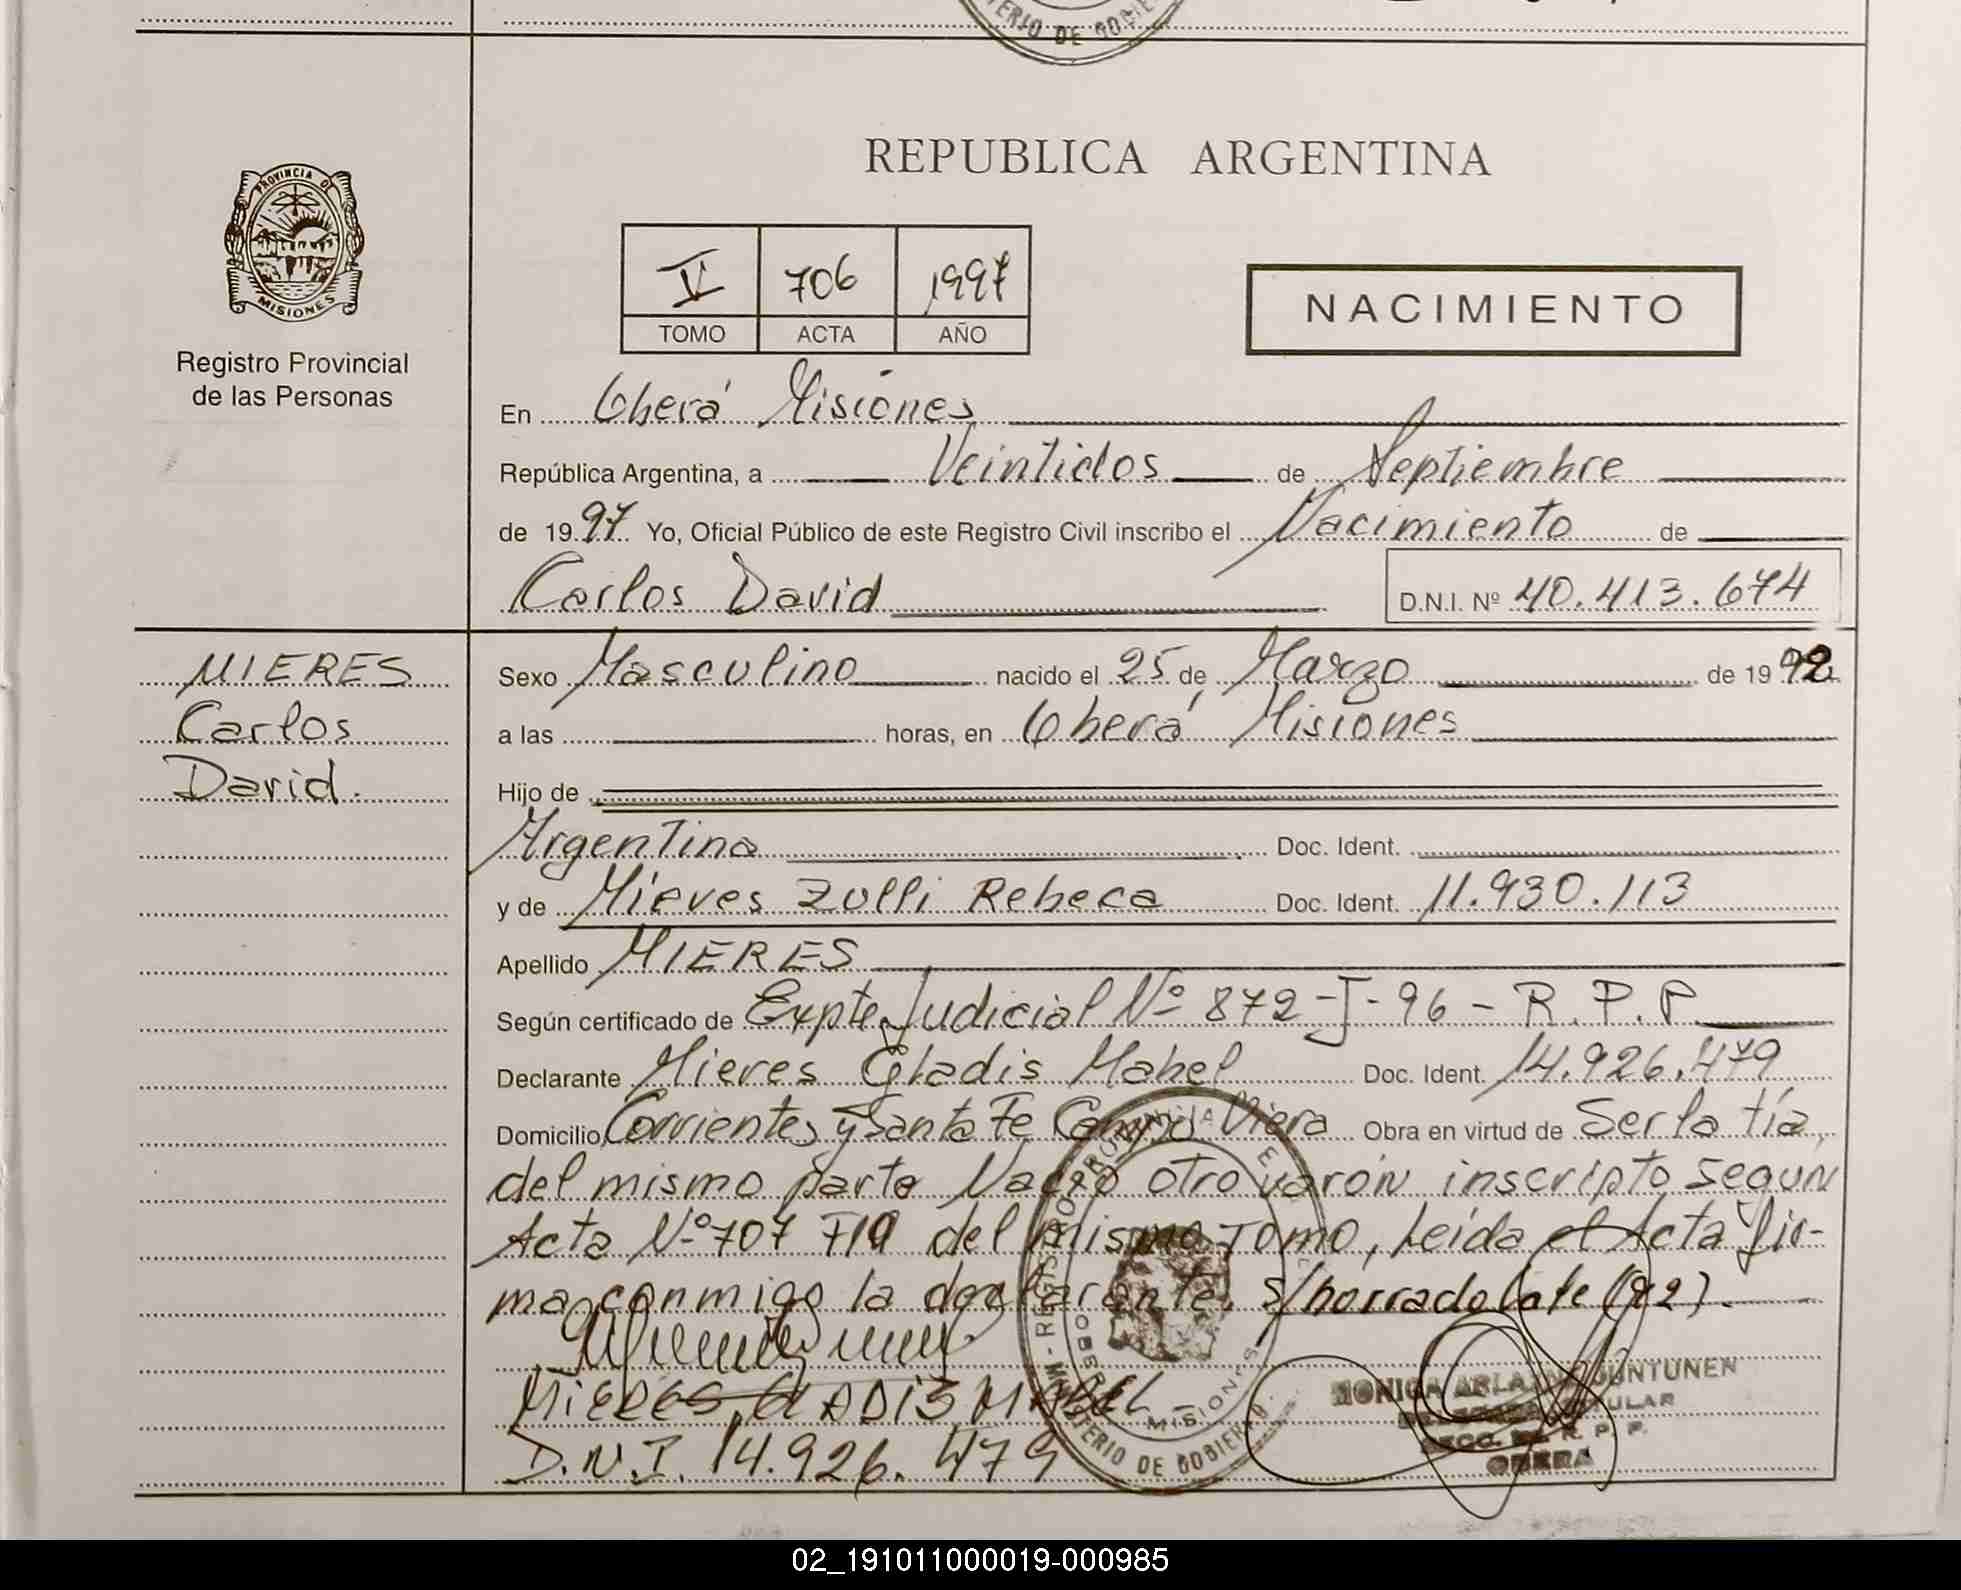 TERIO DE GOBIE
REPUBLICA ARGENTINA
PROVINCIA DE
MISIONES
Registro Provincial
de las Personas
V 706 1997
TOMO ACTA AÑO
NACIMIENTO
En Oberá Misiones
República Argentina, a Veintidos de Septiembre
de 1997 Yo, Oficial Público de este Registro Civil inscribo el Nacimiento de
Carlos David D.N.I. Nº 40.413.674
MIERES
Carlos
David.
Sexo Masculino nacido el 25 de Marzo de 1992
a las horas, en Oberá Misiones
Hijo de
Argentina Doc. Ident.
y de Mieres Zulli Rebeca Doc. Ident. 11.930.113
Apellido MIERES
Según certificado de Expte Judicial Nº 872-J-96-R.P.P.
Declarante Mieres Gladis Mabel Doc. Ident. 14.926.479
Domicilio Corrientes y Santa Fe Campo Viera Obra en virtud de Ser la tía
del mismo parto Nació otro varón inscripto según
Acta Nº 707 del mismo Tomo, Leída el Acta fir-
ma conmigo la declarante. s/borrado (92).
MIERES GLADIS MABEL
D.N.I. 14.926.479
MISIONES
MINISTERIO DE GOBIERNO
MONICA
TITULAR
R. P. P.
OBERA
02_191011000019-000985